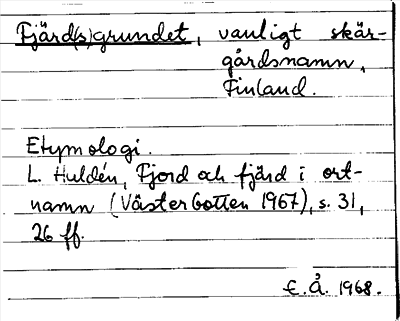 Fjärd(s)grundet, vanligt skär-
gårdsnamn,
Finland.
Etymologi.
L. Huldén, Fjord och fjärd i ort-
namn (Västerbotten 1967), s. 31,
26 ff.
E.Å. 1968.